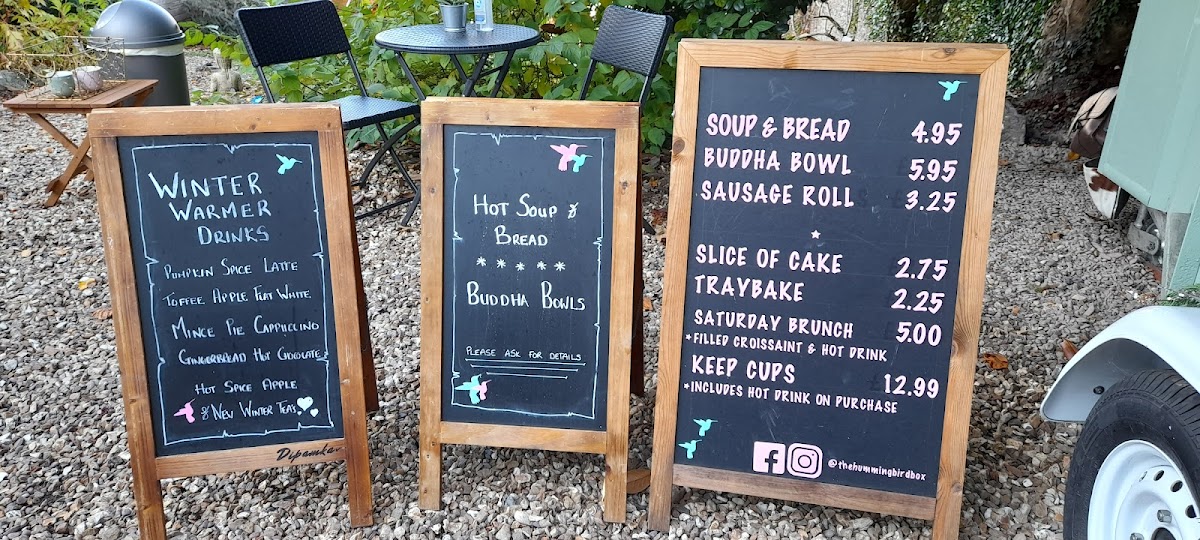 WINTER
WARMER
DRINKS
PUMPKIN SPICE LATTE
TOFFEE APPLE FLAT WHITE
MINCE PIE CAPPUCCINO
GINGERBREAD HOT CHOCOLATE
HOT SPICE APPLE
& NEW WINTER TEAS
Dipamkar
HOT SOUP &
BREAD
* * * * *
BUDDHA BOWLS
PLEASE ASK FOR DETAILS
SOUP & BREAD 4.95
BUDDHA BOWL 5.95
SAUSAGE ROLL 3.25
SLICE OF CAKE 2.75
TRAYBAKE 2.25
SATURDAY BRUNCH £5.00
*FILLED CROISSANT & HOT DRINK
KEEP CUPS £12.99
*INCLUDES HOT DRINK ON PURCHASE
@thehummingbirdbox